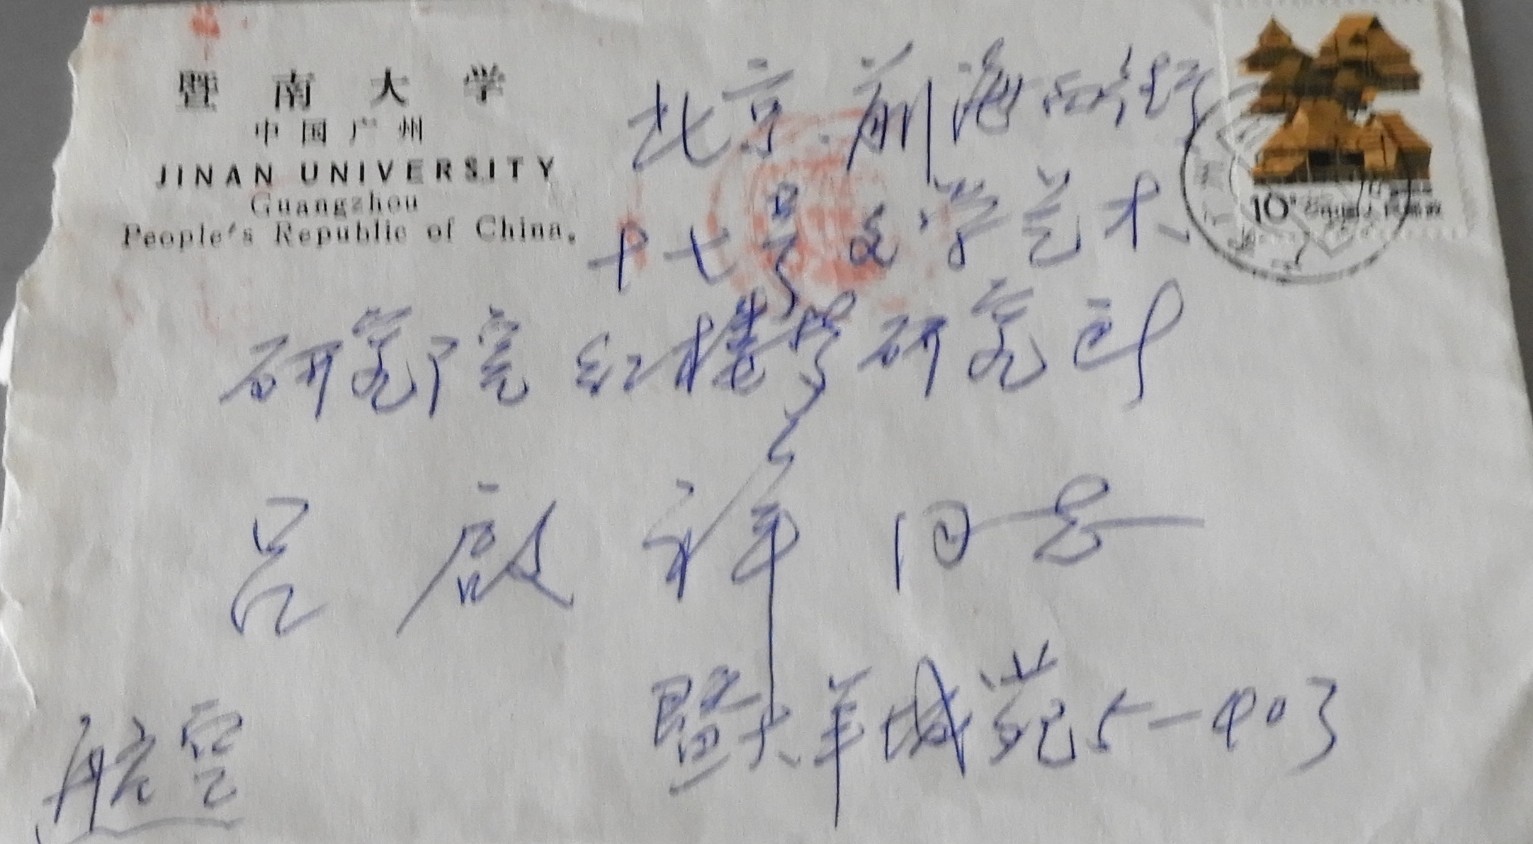 暨南大学
中国广州
JINAN UNIVERSITY
Guangzhou
People's Republic of China.
北京.前海西街
十七号文学艺术
研究院红楼梦研究所
吕啟祥同志
暨大羊城苑5-403
航空
10分中国人民邮政